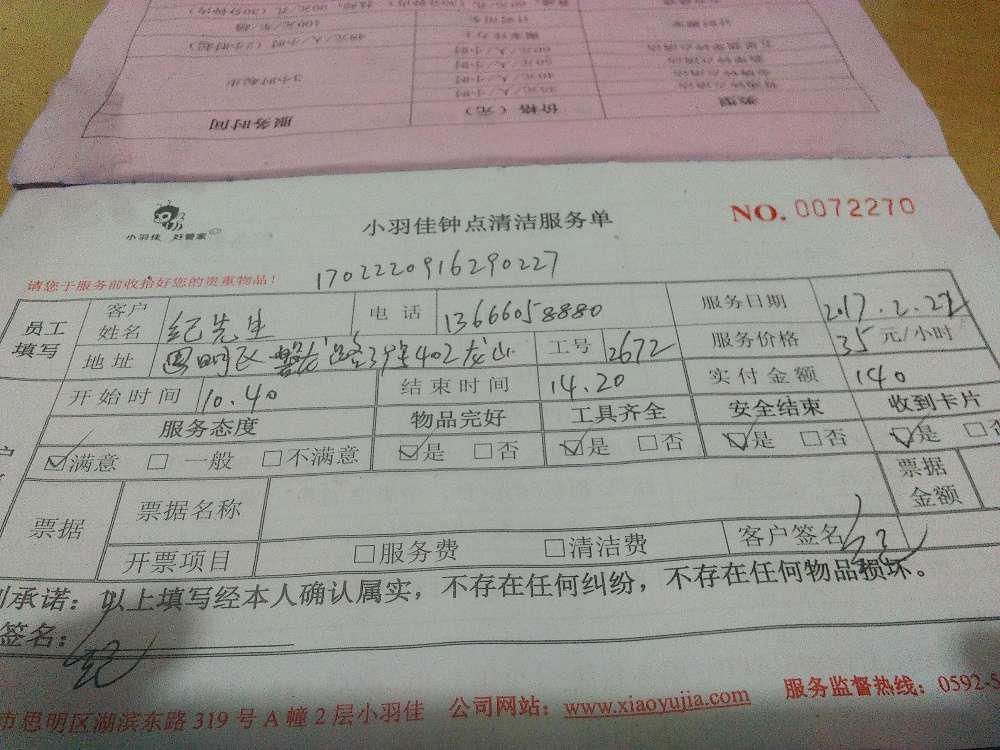 服务时间 价格（元） 类型
3小时起步
48元/人/小时（2小时起）
小羽佳 好管家
小羽佳钟点清洁服务单
NO. 0072270
请您于服务前收拾好您的贵重物品！
1702220916290227
员工填写 客户姓名 纪先生 电话 13666058880 服务日期 2017.2.22
地址 思明区 路39号402龙山 工号 2672 服务价格 35元/小时
开始时间 10.40 结束时间 14.20 实付金额 140
服务态度 物品完好 工具齐全 安全结束 收到卡片
☑满意 □一般 □不满意 ☑是 □否 ☑是 □否 ☑是 □否 ☑是 □否
票据 票据名称 票据金额
开票项目 □服务费 □清洁费 客户签名 纪
承诺：以上填写经本人确认属实，不存在任何纠纷，不存在任何物品损坏。
签名： 纪
市思明区湖滨东路319号A幢2层小羽佳 公司网站：www.xiaoyujia.com 服务监督热线：0592-5